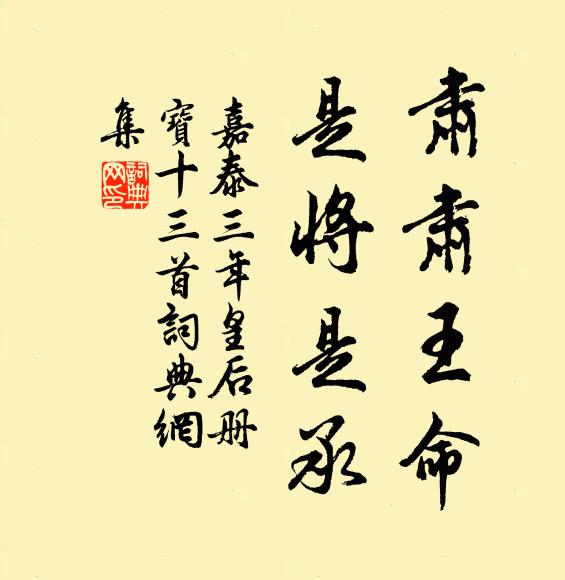 肅肅王命
是將是承
嘉泰三年皇后册
寶十三首詞典網
集
詞典
网印